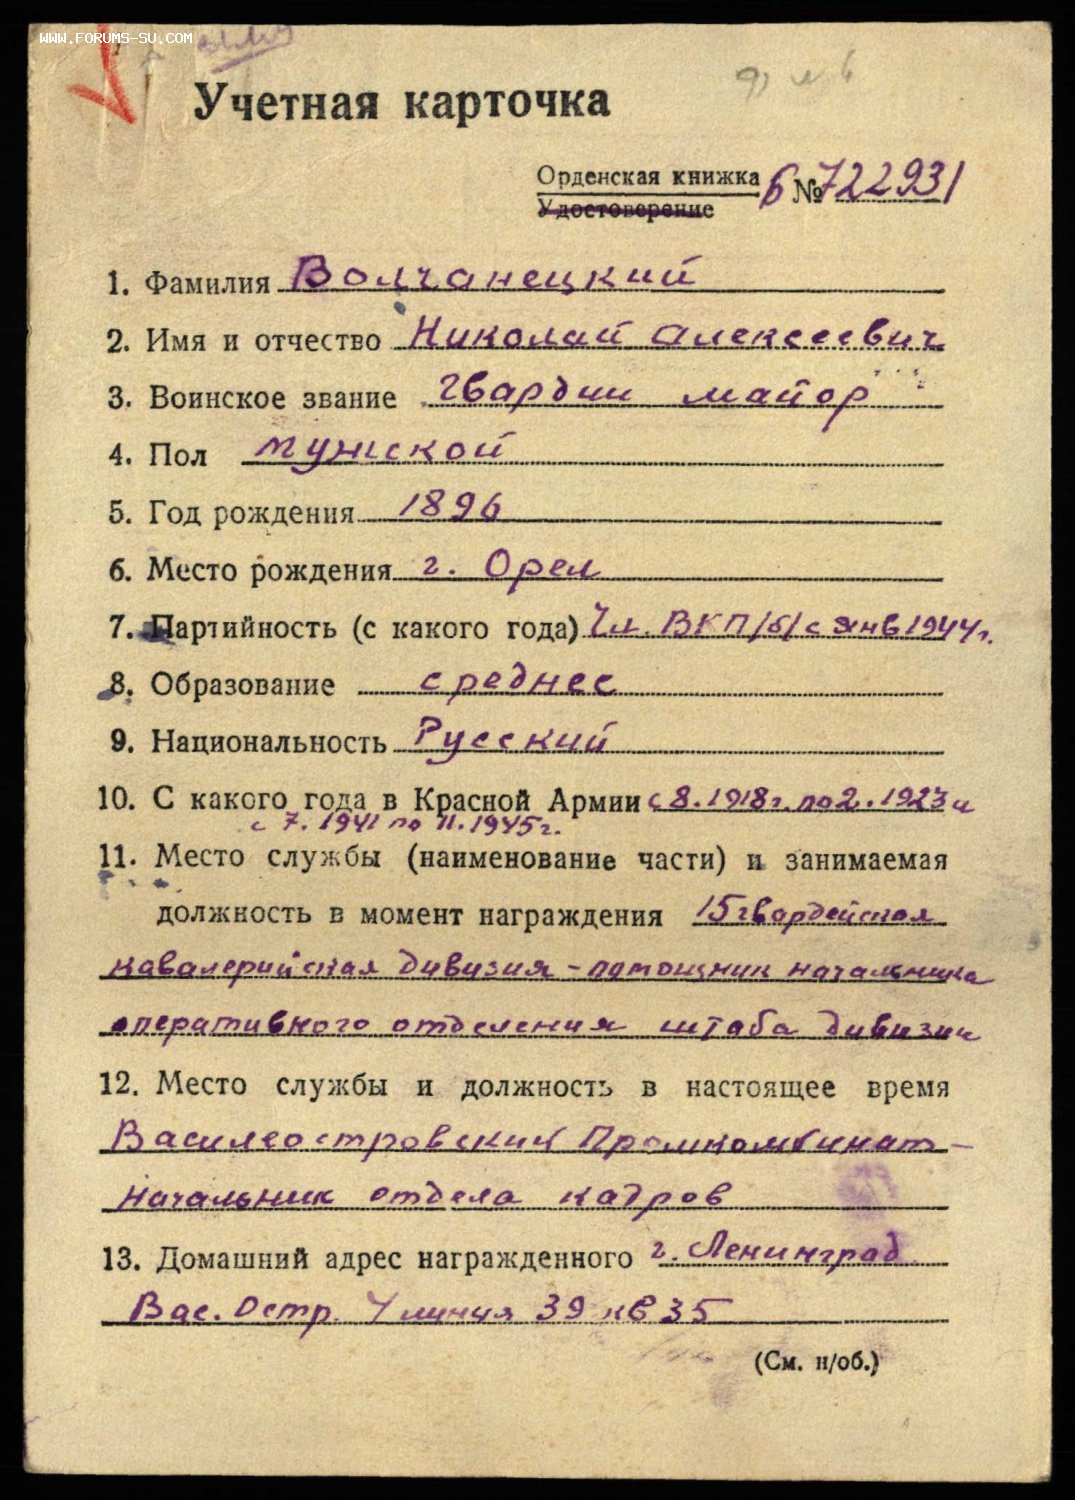 WWW.FORUMS-SU.COM
Учетная карточка
Орденская книжка Б № 722931
Удостоверение
1. Фамилия Волчанецкий
2. Имя и отчество Николай Алексеевич
3. Воинское звание гвардии майор
4. Пол мужской
5. Год рождения 1896
6. Место рождения г. Орел
7. Партийность (с какого года) Чл. ВКП/б/ с янв 1944 г.
8. Образование среднее
9. Национальность Русский
10. С какого года в Красной Армии с 8.1918 г. по 2.1923 и
с 7.1941 по 11.1945 г.
11. Место службы (наименование части) и занимаемая
должность в момент награждения 15 гвардейская
кавалерийская дивизия – помощник начальника
оперативного отделения штаба дивизии
12. Место службы и должность в настоящее время
Василеостровский Промкомбинат –
начальник отдела кадров
13. Домашний адрес награжденного г. Ленинград
Вас. Остр. линия 39 кв 35
(См. н/об.)